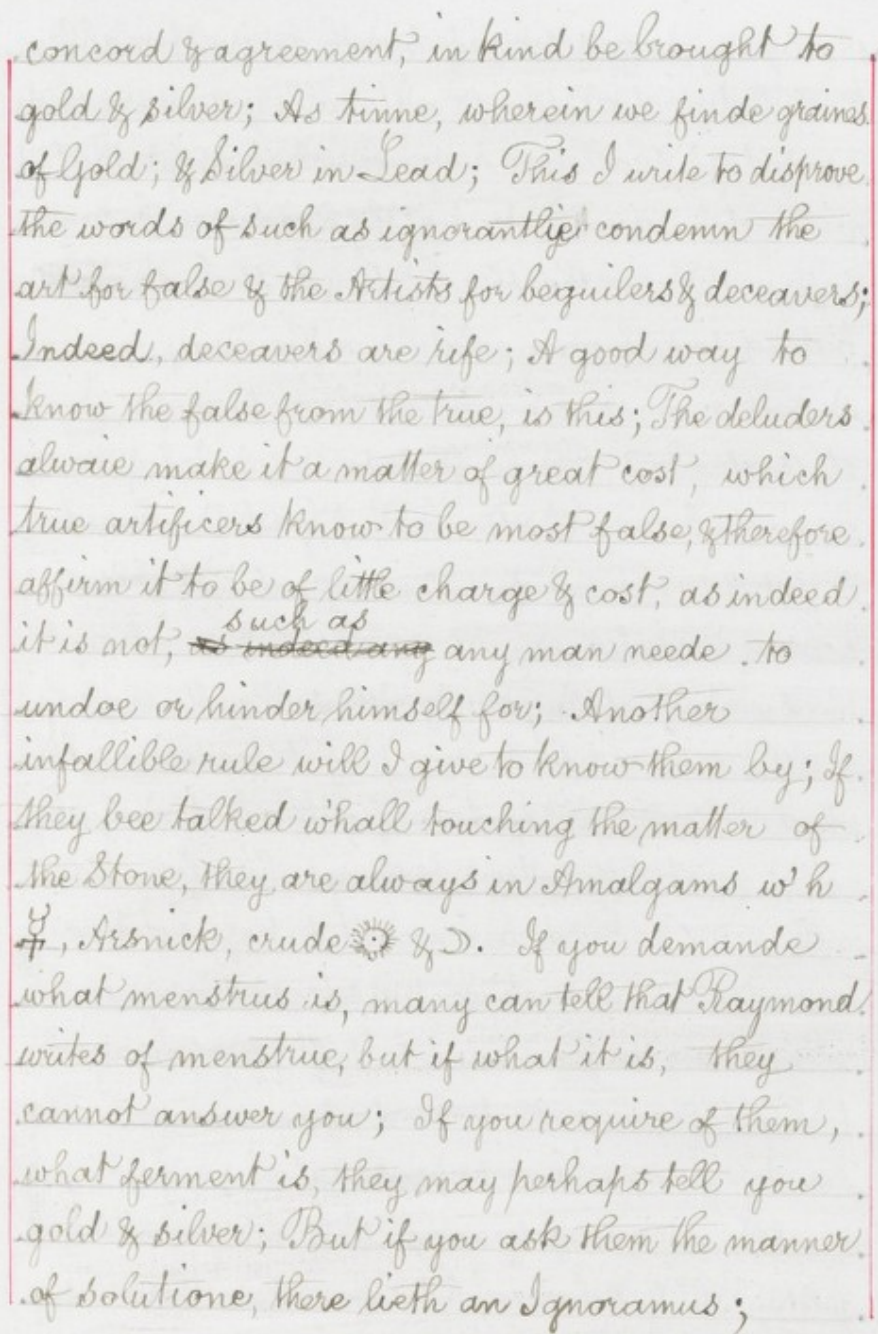 concord & agreement, in kind be brought to
gold & silver; As tinne, wherein we finde graines
of Gold; & Silver in Lead; This I write to disprove
the words of such as ignorantlie condemn the
art for false & the Artists for beguilers & deceavers;
Indeed, deceavers are rife; A good way to
know the false from the true, is this; The deluders
alwaie make it a matter of great cost, which
true artificers know to be most false, & therefore
affirm it to be of little charge & cost, as indeed
such as
it is not, as indeed any any man neede to
undoe or hinder himself for; Another
infallible rule will I give to know them by; If
they bee talked w'hall touching the matter of
the Stone, they are always in Amalgams w'h
☿, Arsnick, crude ☉ & ☽. If you demande
what menstrus is, many can tell that Raymond
writes of menstrue, but if what it is, they
cannot answer you; If you require of them,
what ferment is, they may perhaps tell you
gold & silver; But if you ask them the manner
of solutione, there lieth an Ignoramus;